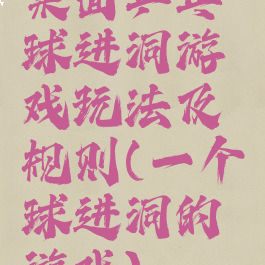 桌面乒乓
球进洞游
戏玩法及
规则(一个
球进洞的
游戏)